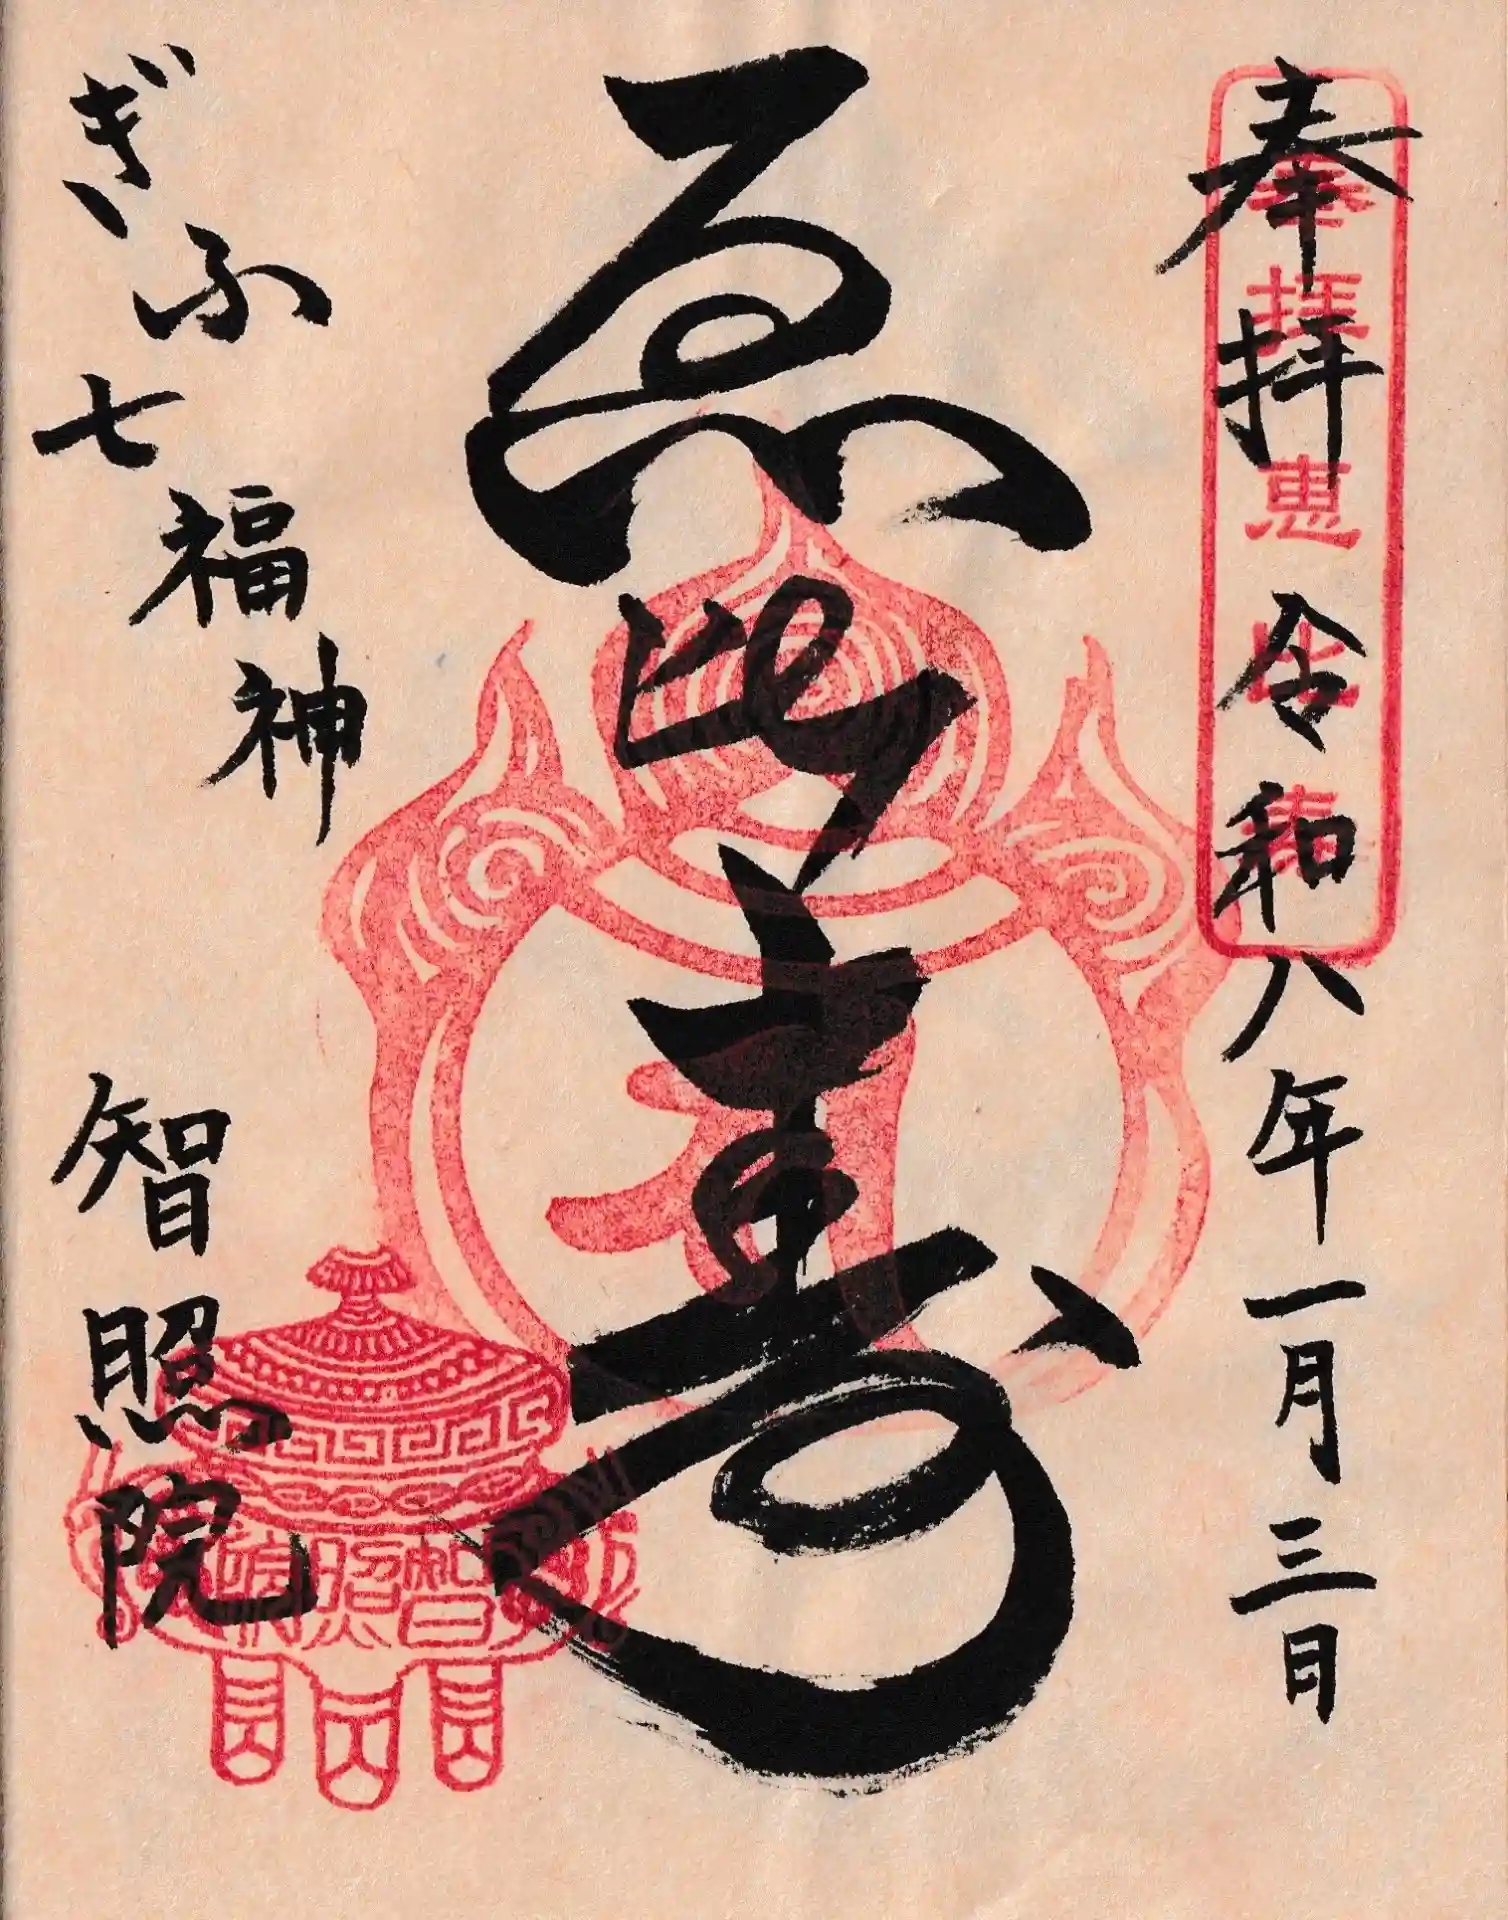 奉拝
令和八年一月三日
奉拝 恵比寿
恵比寿
ぎふ七福神
智照院
智照院